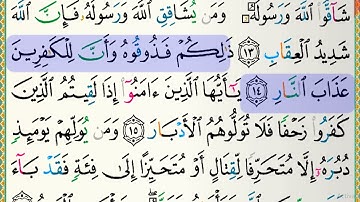 شَآقُّوا۟ ٱللَّهَ وَرَسُولَهُۥ ۚ وَمَن يُشَاقِقِ ٱللَّهَ وَرَسُولَهُۥ فَإِنَّ ٱللَّهَ
شَدِيدُ ٱلْعِقَابِ ١٣ ذَٰلِكُمْ فَذُوقُوهُ وَأَنَّ لِلْكَٰفِرِينَ
عَذَابَ ٱلنَّارِ ١٤ يَٰٓأَيُّهَا ٱلَّذِينَ ءَامَنُوٓا۟ إِذَا لَقِيتُمُ ٱلَّذِينَ
كَفَرُوا۟ زَحْفًا فَلَا تُوَلُّوهُمُ ٱلْأَدْبَارَ ١٥ وَمَن يُوَلِّهِمْ يَوْمَئِذٍ
دُبُرَهُۥٓ إِلَّا مُتَحَرِّفًا لِّقِتَالٍ أَوْ مُتَحَيِّزًا إِلَىٰ فِئَةٍ فَقَدْ بَآءَ